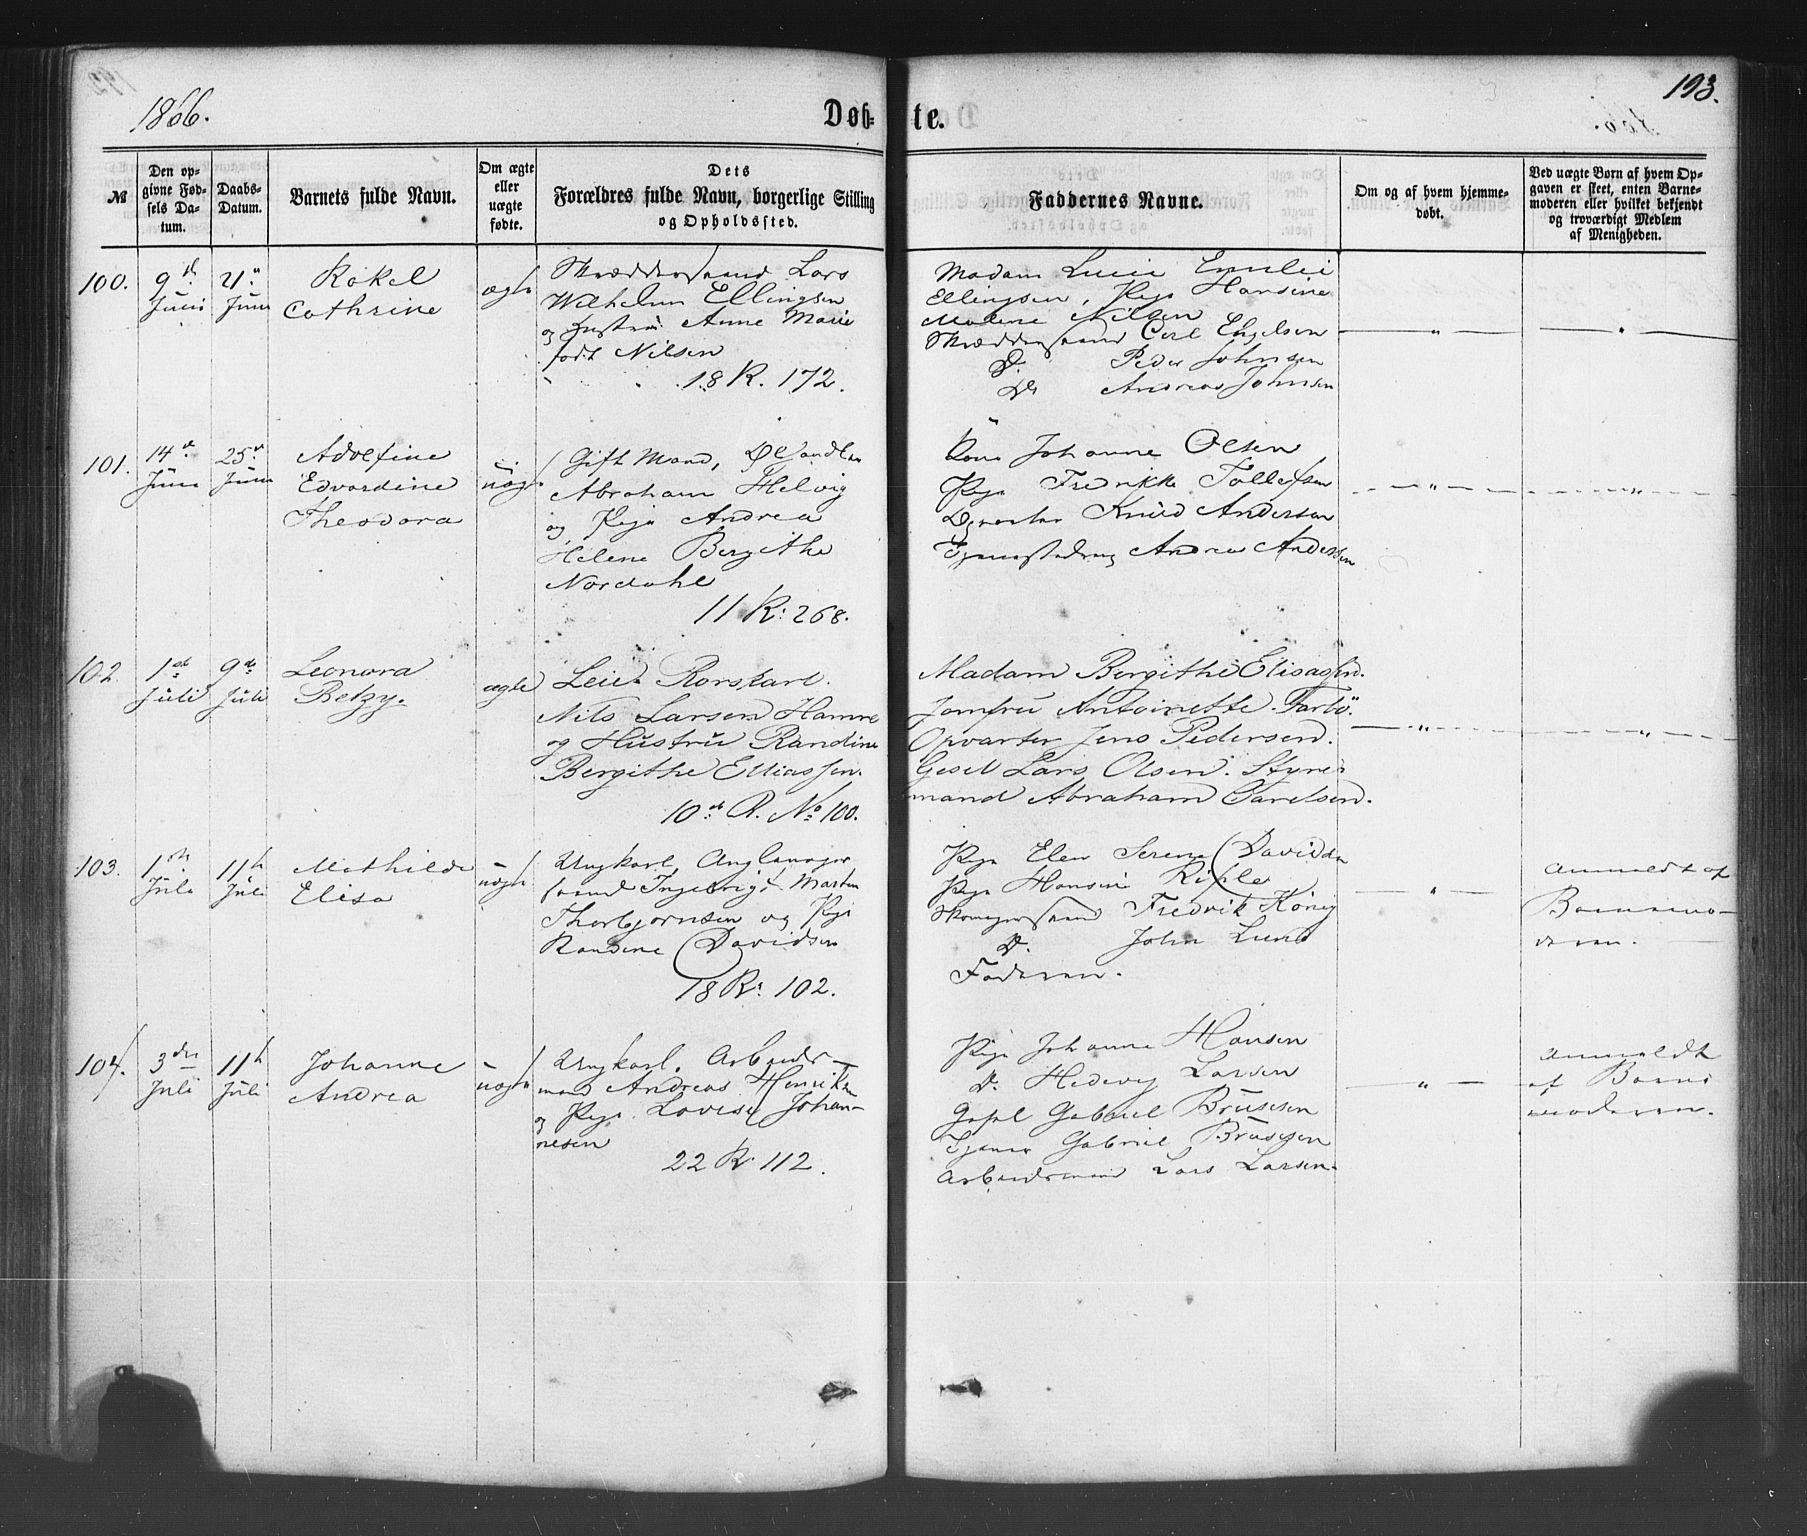 193.
1866.
Døb-
te.
№
Den op-
givne Fød-
sels Da-
tum.
Daabs-
Datum.
Barnets fulde Navn.
Om ægte
eller
uægte
fødte.
Dets
Forældres fulde Navn, borgerlige Stilling
og Opholdssted.
Faddernes Navne.
Om og af hvem hjemme-
døbt.
Ved uægte Børn af hvem Op-
gaven er skeet, enten Barne-
moderen eller hvilket bekjendt
og troværdigt Medlem
af Menigheden.
100.
9
Juni
21
Juni
Rakel
Cathrine
ægte
Skræddersvend Lars
Wilhelm Ellingsen
og Hustru Anne Marie
født Nilsen
18 R. 172.
Madam Lucie Emilie
Ellingsen, Pige Hansine
Malene Nilsen
Skræddersvend Carl Engelsen
D. Peder Johnsen
Do Andreas Johnsen
"
"
101.
14
Juni
25
Juni
Adolfine
Edvardine
Theodora
uægte
Gift Mand,
Abraham Helvig
og Pige Andrea
Helene Bergithe
Nordahl
11 R: 268.
Kone Johanne Olsen
Pige Fredrikke Tollefsen
Knud Andersen
Tjenestedreng Andreas Andersen
"
"
102
1st
Juli
9de
Juli
Leonora
Betzy.
ægte
Leier Rorskarl.
Nils Larsen Hamre
og Hustru Randine
Bergithe Elliassen.
10de R. No 100.
Madam Bergithe Eliassen.
Jomfru Antoinette Farbö.
Opvarter Jens Pedersen.
Gesel Lars Olsen. Styre-
mand Abraham Carelsen.
"
"
103.
1ste
Juli
11te
Juli
Mathilde
Elisa
uægte
Ungkarl,
svend Ingebrigt Martin
Thorbjørnsen og Pige
Randine Davidsen
18 R: 102.
Pige Elen Serene Davidsen
Pige Hansine
Skomagersvend Fredrik König
D. John Lund
Faderen.
"
Anmeldt af
Barnemo-
deren.
104.
3die
Juli
11te
Juli
Johanne
Andrea
uægte
Ungkarl, Arbeids-
mand Andreas Henriksen
og Pige Lovise Johan-
nesen
22 R. 112.
Pige Johanne Hansen
D. Hedevig Larsen
Gesel Gabriel Brusesen
Tjener Gabriel Brusesen
Arbeidsmand Lars Larsen.
"
Anmeldt
af Barne
moderen.